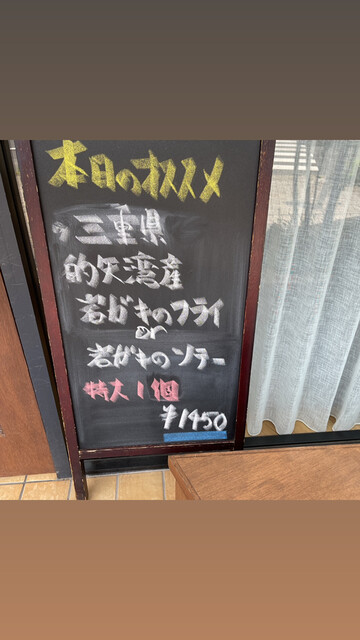 本日のオススメ
三重県
的矢湾産
岩ガキのフライ
or
岩ガキのソテー
特大1個
¥1450